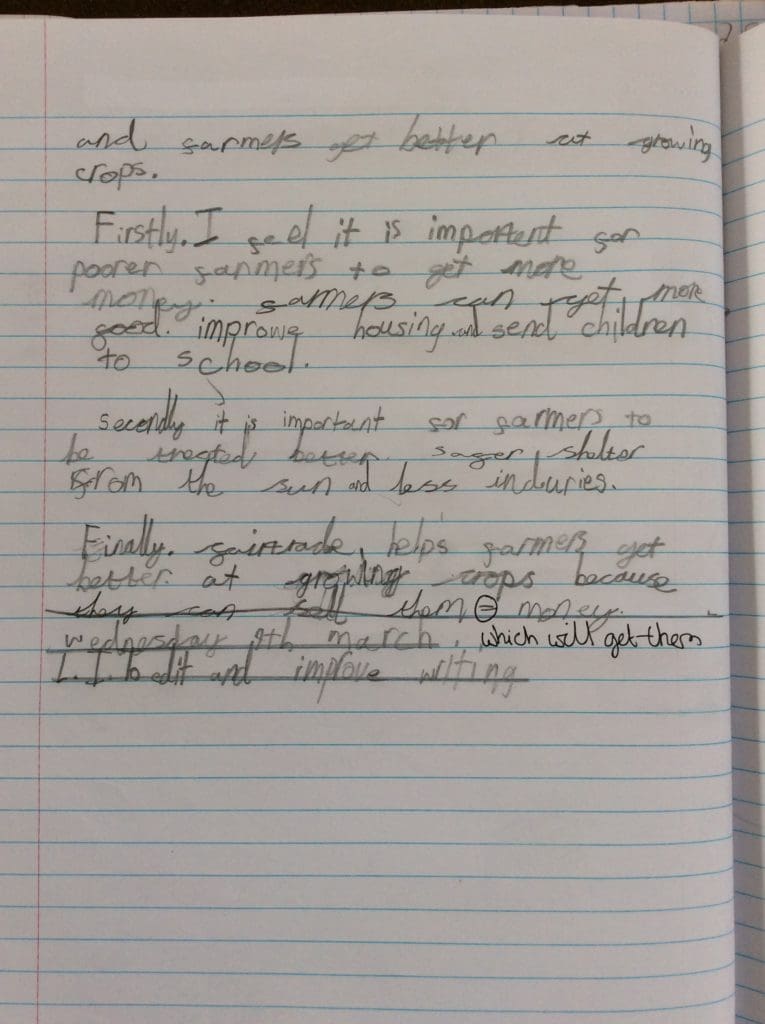 and farmers get better at growing
crops.
Firstly. I feel it is important for
poorer farmers to get more
money. farmers can get more
food. improve housing and send children
to school.
Secondly it is important for farmers to
be treated better. safer, shelter
from the sun and less induries.
Finally. fairtrade, helps farmers get
better at growing crops because
they can sell them = money.
wednesday 9th march, which will get them
L.I. to edit and improve writing